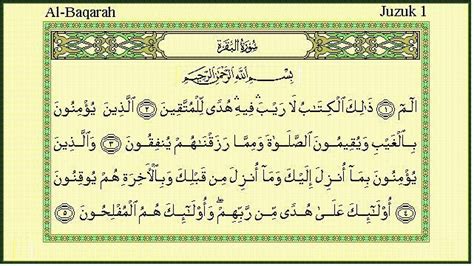 Al-Baqarah Juzuk 1
سُورَةُ البَقَرَةِ
بِسْمِ اللَّهِ الرَّحْمَٰنِ الرَّحِيمِ
الٓمٓ ١ ذَٰلِكَ ٱلْكِتَٰبُ لَا رَيْبَ فِيهِ هُدًى لِّلْمُتَّقِينَ ٢ ٱلَّذِينَ يُؤْمِنُونَ
بِٱلْغَيْبِ وَيُقِيمُونَ ٱلصَّلَوٰةَ وَمِمَّا رَزَقْنَٰهُمْ يُنفِقُونَ ٣ وَٱلَّذِينَ
يُؤْمِنُونَ بِمَآ أُنزِلَ إِلَيْكَ وَمَآ أُنزِلَ مِن قَبْلِكَ وَبِٱلْءَاخِرَةِ هُمْ يُوقِنُونَ
٤ أُو۟لَٰٓئِكَ عَلَىٰ هُدًى مِّن رَّبِّهِمْ ۖ وَأُو۟لَٰٓئِكَ هُمُ ٱلْمُفْلِحُونَ ٥